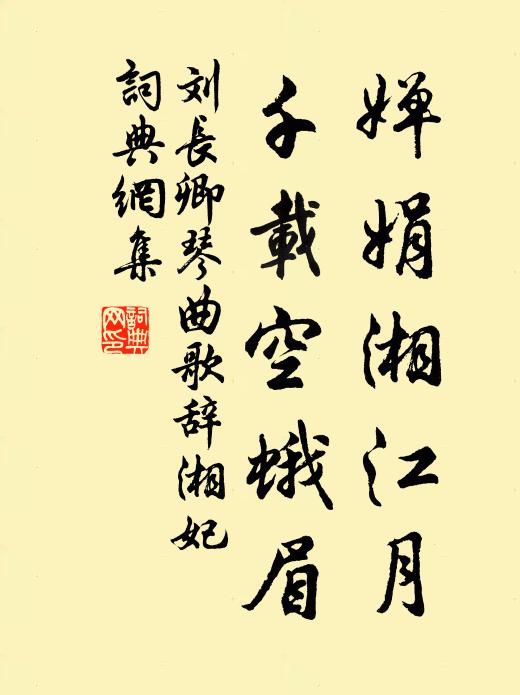 婵娟湘江月
千載空蛾眉
刘長卿琴曲歌辞湘妃
詞典網集
詞典网印